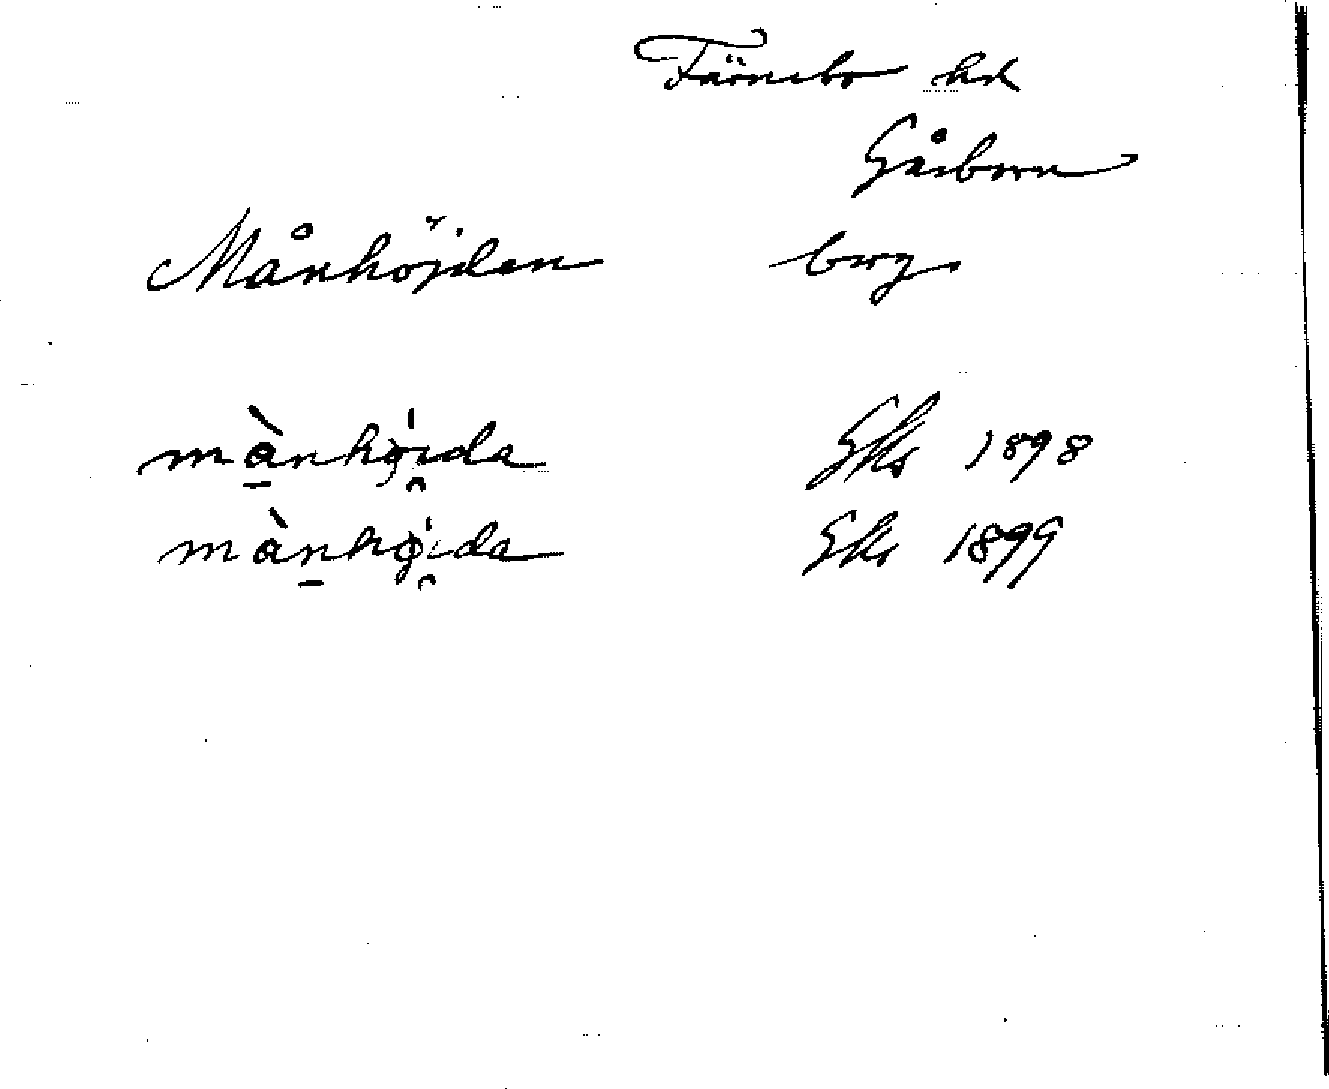 Färnebo hd
Gåsborn
Månhöjden berg.
mànhö́i̯da Eks 1898
mànhö́i̯da Eks 1899